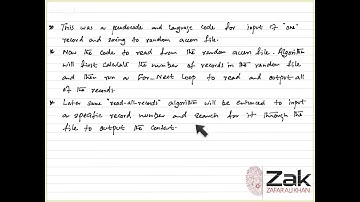 * This was a pseudocode and language code for input of "one"
record and saving to random access file.
* Now the code to read from the random access file. Algorithm
will first calculate the number of records in the random file
and then run a For_Next loop to read and output all
of the records.
* Later same "read-all-records" algorithm will be enhanced to input
a specific record number and search for it through the
file to output the content.
Zak
ZAFAR ALI KHAN